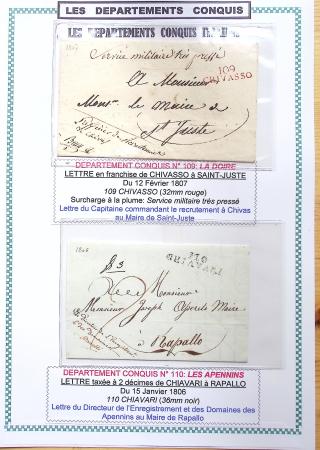 LES DEPARTEMENTS CONQUIS
LES DEPARTEMENTS CONQUIS
1807
Service militaire très pressé
109
CHIVASSO
A Monsieur
Mons. le Maire de
St Juste
DEPARTEMENT CONQUIS N° 109: LA DOIRE
LETTRE en franchise de CHIVASSO à SAINT-JUSTE
Du 12 Février 1807
109 CHIVASSO (32mm rouge)
Surcharge à la plume: Service militaire très pressé
Lettre du Capitaine commandant le recrutement à Chivas
au Maire de Saint-Juste
1806
110
CHIAVARI
A Monsieur
Monsieur Joseph Maire
à Rapallo
DEPARTEMENT CONQUIS N° 110: LES APENNINS
LETTRE taxée à 2 décimes de CHIAVARI à RAPALLO
Du 15 Janvier 1806
110 CHIAVARI (36mm noir)
Lettre du Directeur de l'Enregistrement et des Domaines des
Apennins au Maire de Rapallo